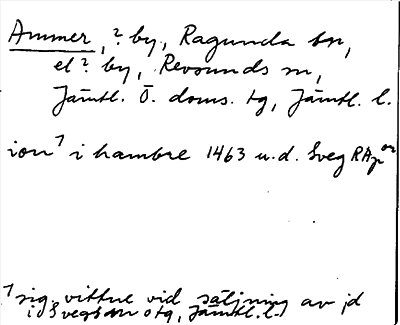 Ammer, ? by, Ragunda sn,
el ? by, Revsunds sn,
Jämtl. Ö. doms. tg, Jämtl. l.
ion⁷ i hambre 1463 u.d. Sveg RAp or
⁷ sig. vittne vid säljning av jd
i Svegs sn o tg, Jämtl. l.